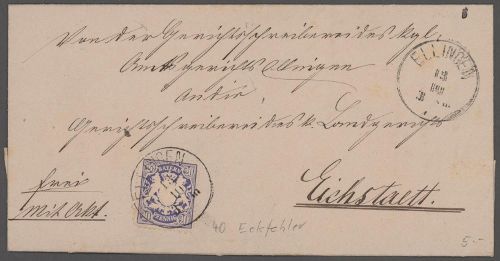 Von der Gerichtsschreiberei des kgl.
Amtsgerichts Ellingen
An die
Gerichtsschreiberei des k. Landgerichts
Eichstaett.
frei
mit Arkt.
ELLINGEN
ELLINGEN
BAYERN
PFENNIG
40 Eckfehler
5.-